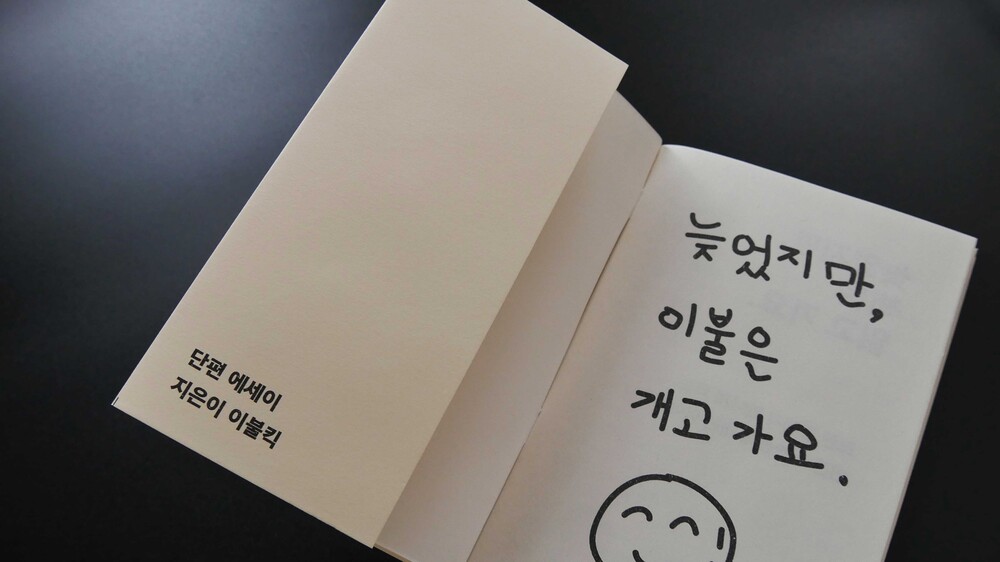 단편 에세이
지은이 이불킥
늦었지만,
이불은
개고 가요.